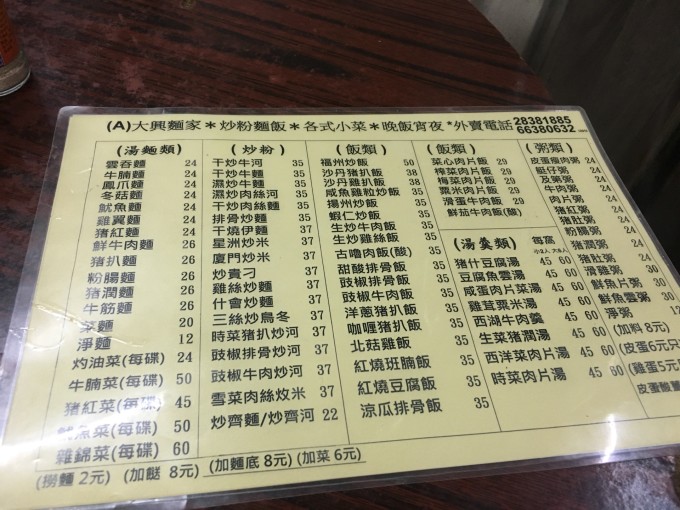 (A)大興麵家＊炒粉麵飯＊各式小菜＊晚飯宵夜*外賣電話 28381885
66380632
(湯麵類)
雲吞麵 24
牛腩麵 24
鳳爪麵 24
冬菇麵 24
魷魚麵 24
雞翼麵 24
猪紅麵 24
鮮牛肉麵 26
猪扒麵 26
粉腸麵 26
猪潤麵 26
牛筋麵 26
菜麵 20
淨麵 12
灼油菜(每碟) 24
牛腩菜(每碟) 50
猪紅菜(每碟) 45
魷魚菜(每碟) 50
雜錦菜(每碟) 60
(炒粉)
干炒牛河 35
干炒牛麵 35
濕炒牛麵 35
濕炒肉絲河 35
干炒肉絲麵 35
排骨炒麵 35
干燒伊麵 35
星洲炒米 37
廈門炒米 37
炒貴刁 37
雞絲炒麵 37
什會炒麵 37
三絲炒烏冬 37
時菜猪扒炒河 37
豉椒排骨炒河 37
豉椒牛肉炒河 37
雪菜肉絲炆米 37
炒齋麵/炒齋河 22
(飯類)
福州炒飯 50
沙丹猪扒飯 38
沙丹雞扒飯 38
咸魚雞粒炒飯 35
揚州炒飯 35
蝦仁炒飯 35
生炒牛肉飯 35
生炒雞絲飯 35
古嚕肉飯(酸) 35
甜酸排骨飯 35
豉椒排骨飯 35
豉椒牛肉飯 35
洋蔥猪扒飯 35
咖喱猪扒飯 35
北菇雞飯 35
紅燒班腩飯 35
紅燒豆腐飯 35
涼瓜排骨飯 35
(飯類)
菜心肉片飯 29
榨菜肉片飯 29
梅菜肉片飯 29
粟米肉片飯 29
滑蛋牛肉飯 29
鮮茄牛肉飯(酸)
(湯羹類) 每窩
小2人 大4人
猪什豆腐湯 45 60
豆腐魚雲湯 45 60
咸蛋肉片菜湯 45 60
雞茸粟米湯 45 60
西湖牛肉羹 45 60
生菜猪潤湯 45 60
西洋菜肉片湯 45 60
時菜肉片湯 45 60
(粥類)
皮蛋瘦肉粥 24
艇仔粥 24
及第粥 24
牛肉粥 24
肉片粥 24
猪紅粥 24
猪肚粥 24
粉腸粥 24
猪潤粥 24
滑雞粥 30
鮮魚片粥 30
鮮魚雲粥 30
淨粥 12
(加料 8元)
(皮蛋6元只
(雞蛋5元
皮蛋酸薑
(撈麵 2元) (加餸 8元) (加麵底 8元) (加菜 6元)